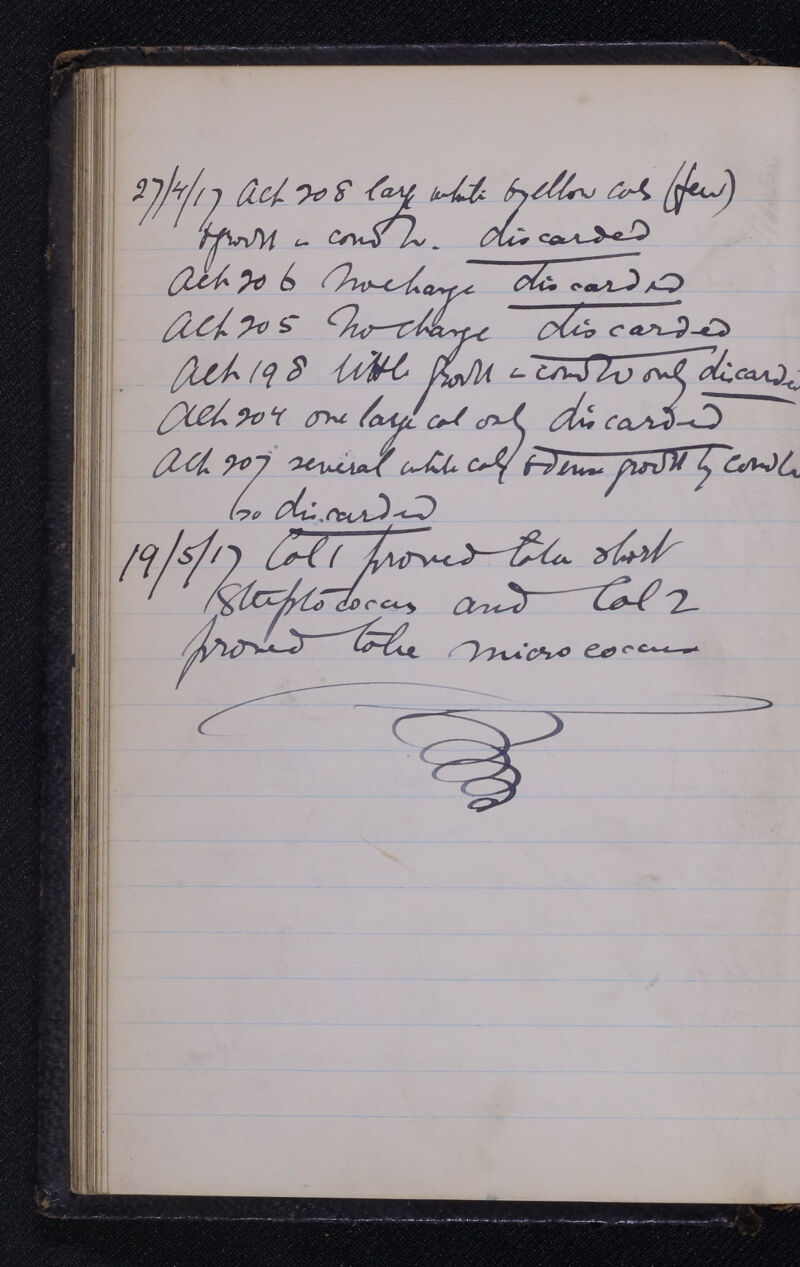 27/4/17 Ach 208 large white & yellow cols (few)
& growth in cond W. discarded
Ach 206 No change discarded
Ach 205 No change discarded
Ach 198 little growth in cond W only discarded
Ach 204 one large col only discarded
Ach 207 several white cols & dense growth by cond W
so discarded
19/5/17 Col 1 proved to be short
Streptococcus and Col 2
proved to be micrococcus